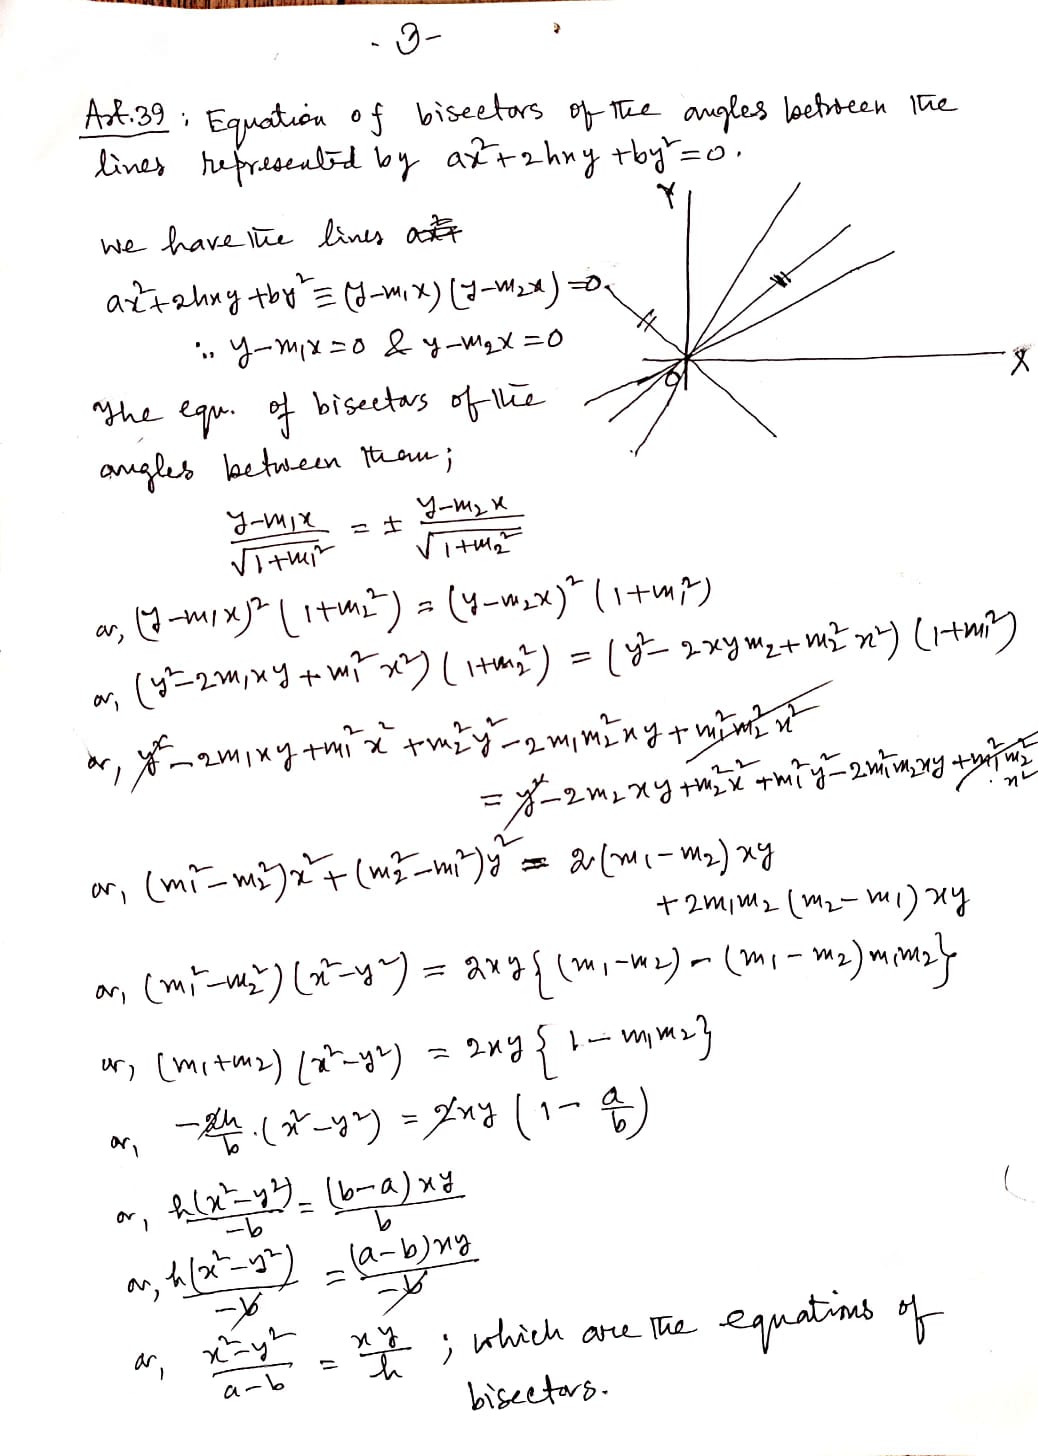 - 3 -
Art.39 ; Equation of bisectors of the angles between the
lines represented by ax²+2hxy+by²=0.
Y
we have the lines
ax²+2hxy+by² ≡ (y-m₁x)(y-m₂x)=0.
∴ y-m₁x=0 & y-m₂x=0
X
O
The equ. of bisectors of the
angles between them;
(y-m₁x)/√(1+m₁²) = ± (y-m₂x)/√(1+m₂²)
or, (y-m₁x)² (1+m₂²) = (y-m₂x)² (1+m₁²)
or, (y²-2m₁xy+m₁²x²)(1+m₂²) = (y²-2xym₂+m₂²x²)(1+m₁²)
or, y²-2m₁xy+m₁²x²+m₂²y²-2m₁m₂²xy+m₁²m₂²x²
= y²-2m₂xy+m₂²x²+m₁²y²-2m₁²m₂xy+m₁²m₂²x²
or, (m₁²-m₂²)x²+(m₂²-m₁²)y² = 2(m₁-m₂)xy
+2m₁m₂(m₂-m₁)xy
or, (m₁²-m₂²)(x²-y²) = 2xy{(m₁-m₂)-(m₁-m₂)m₁m₂}
or, (m₁+m₂)(x²-y²) = 2xy{1-m₁m₂}
or, -2h/b.(x²-y²) = 2xy(1-a/b)
or, h(x²-y²)/-b = (b-a)xy/b
or, h(x²-y²)/-b = (a-b)xy/-b
or, (x²-y²)/(a-b) = xy/h ; which are the equations of
bisectors.